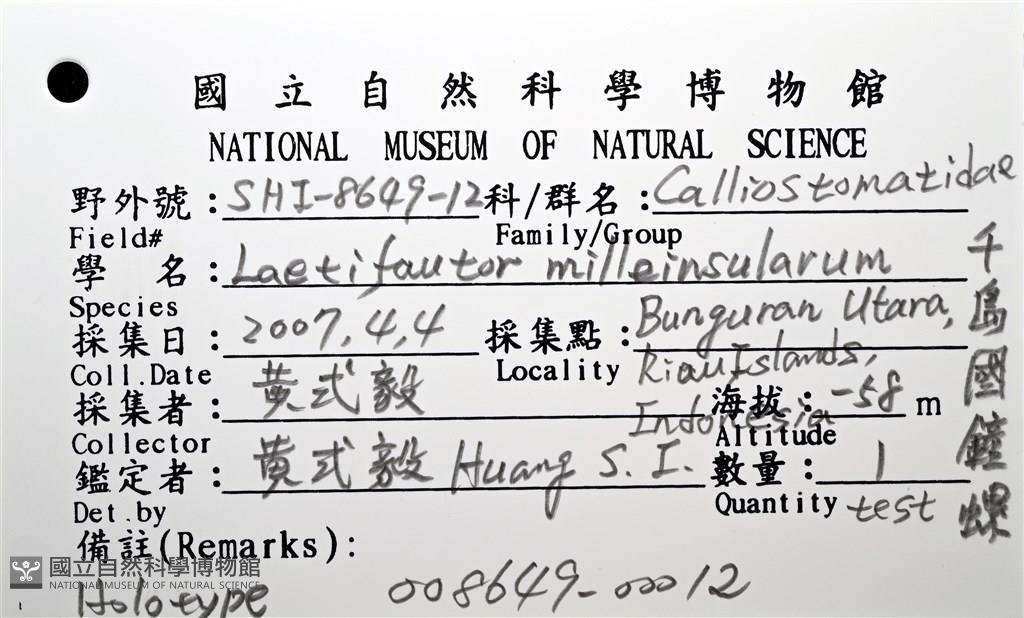 國立自然科學博物館
NATIONAL MUSEUM OF NATURAL SCIENCE
野外號：SHI-8649-12 科/群名：Calliostomatidae
Field# Family/Group
學名：Laetifautor milleinsularum
Species
採集日：2007,4,4 採集點：Bunguran Utara,
Coll.Date Locality Riau Islands,
採集者：黃式毅 海拔：-58 m
Collector Indonesia Altitude
鑑定者：黃式毅 Huang S. I. 數量：1
Det.by Quantity test
千島國鐘螺
備註(Remarks):
國立自然科學博物館
NATIONAL MUSEUM OF NATURAL SCIENCE
Holotype 008649-00012